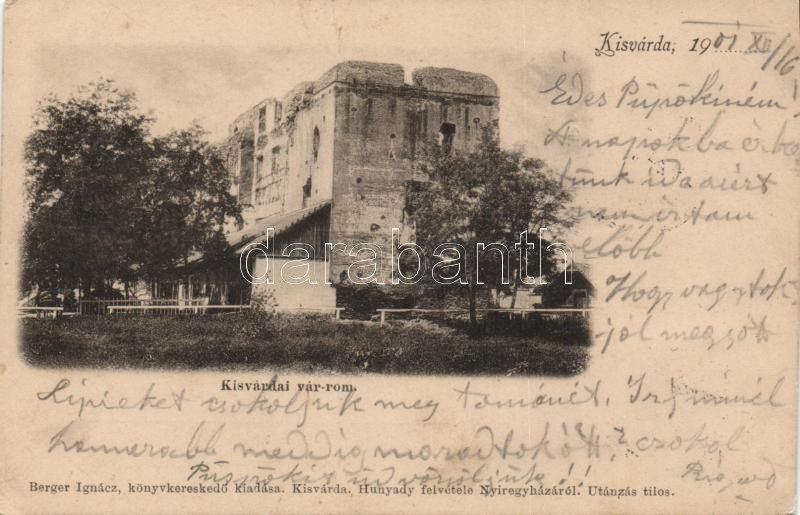 Kisvárda, 1901 XII/16
Édes Püpökiném!
A napokba érkez
tünk ida azért
nem irtam
előbb
Hogy vagytok
jól meggött
darabanth
Kisvárdai vár-rom.
csókoljuk meg
Irj minél
hamarabb meddig maradtok ott, csókol
üdvözöljük!!
Berger Ignácz, könyvkereskedő kiadása. Kisvárda. Hunyady felvétele Nyiregyházáról. Utánzás tilos.